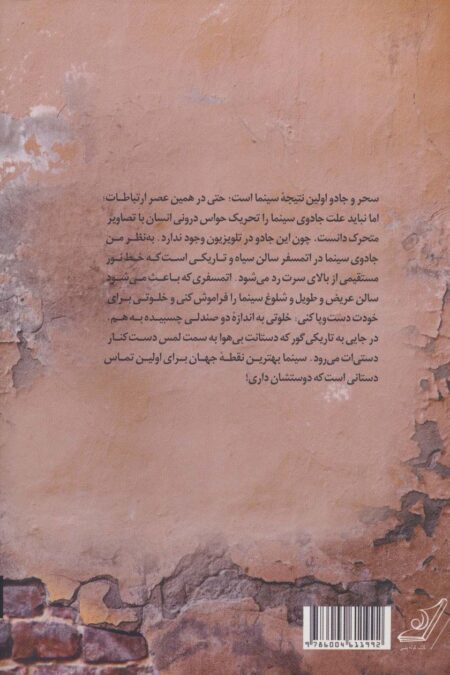 سحر و جادو اولین نتیجهٔ سینما است؛ حتی در همین عصر ارتباطات؛
اما نباید علت جادوی سینما را تحریک حواس درونی انسان با تصاویر
متحرک دانست. چون این جادو در تلویزیون وجود ندارد. به‌نظر من
جادوی سینما در اتمسفر سالن سیاه و تاریکی است که خط نور
مستقیمی از بالای سرت رد می‌شود. اتمسفری که باعث می‌شود
سالن عریض و طویل و شلوغ سینما را فراموش کنی و خلوتی برای
خودت دست‌وپا کنی، خلوتی به اندازهٔ دو صندلی چسبیده به هم،
در جایی به تاریکی گور که دستانت بی‌هوا به سمت لمس دست کنار
دستی‌ات می‌رود. سینما بهترین نقطهٔ جهان برای اولین تماس
دستانی است که دوستشان داری!
9 786004 611992